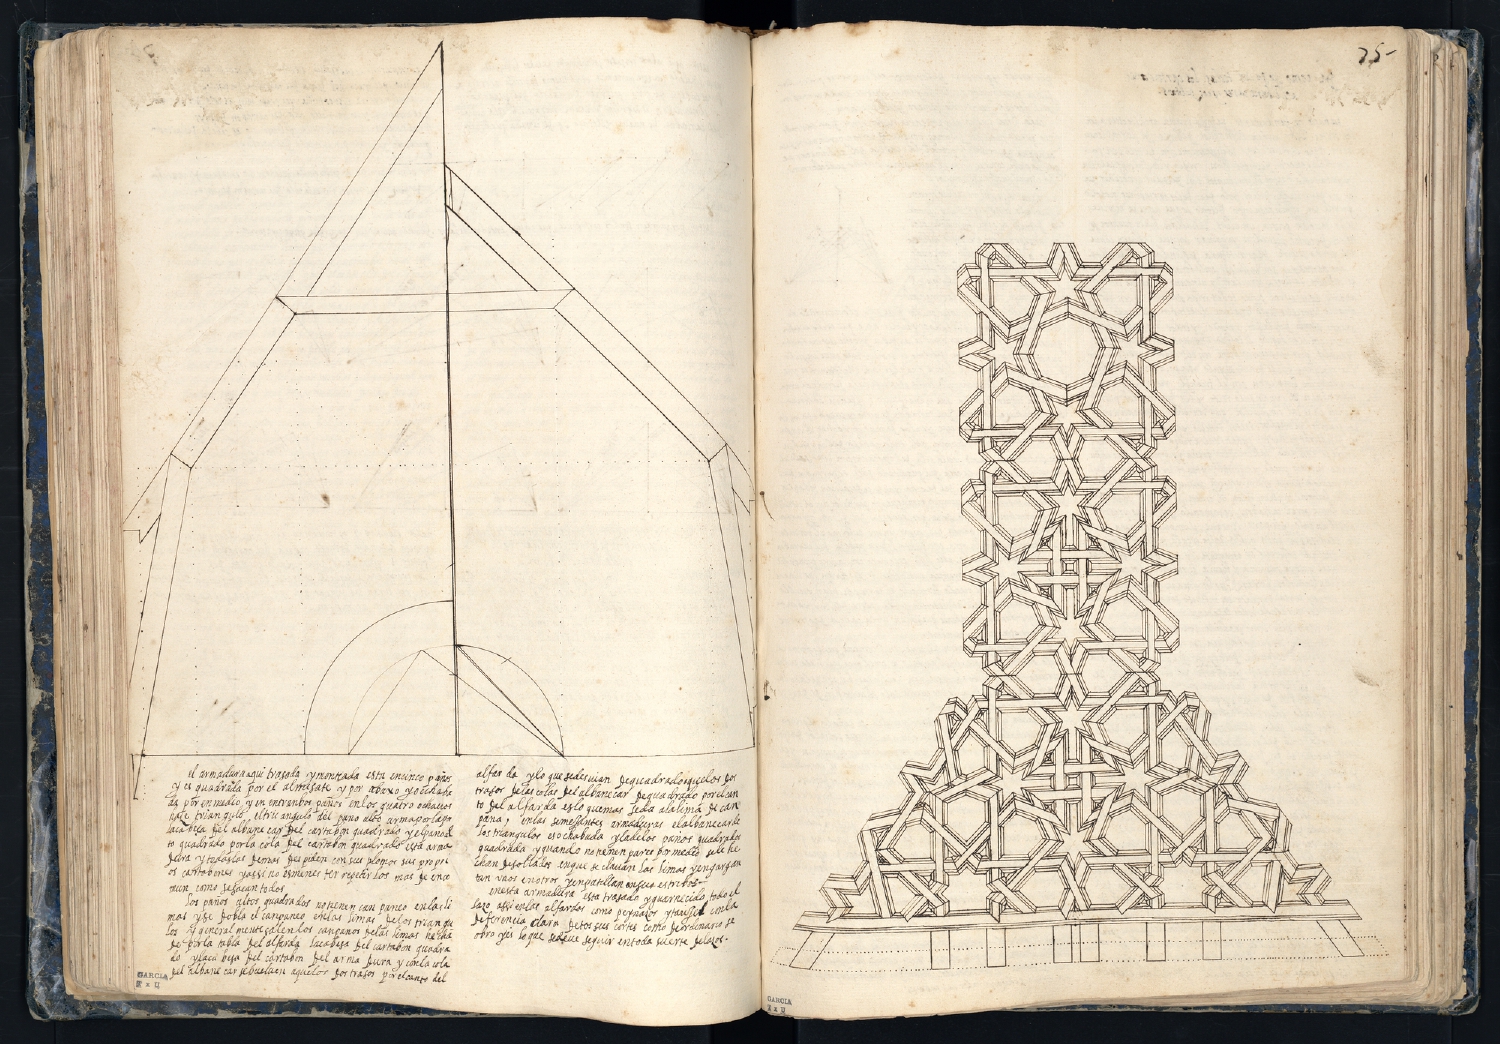 35
el armadura aqui trasada y montada esta en cinco paños
y es quadrada por el almisate y por abaxo y ochaba
da por en medio, y en entranbos paños en los quatro ochavos
naze triangulo, el triangulo del paño alto arma por la
cabeça del albanecar del cartabon quadrado y el paño al
to quadrado por la cola del cartabon quadrado esta arma
dura y todas las demas se piden con sus plomos sus propi
os cartabones y assi no es menester repetir los mas de
como se sacan todos
los paños altos quadrados no tienen canpaneo en las li
mas y se dobla el canpaneo en las limas de los triangu
los general mente salen los canpanos de las limas
de por la tabla del alfarda la cabeça del cartabon quadra
do y la cabeça del cartabon del arma dura y con la cola
del albanecar se buelven aquellos dos trasos por el canto del
alfarda y lo que se desvian de quadrado aquellos dos
trasos de las colas del albanecar de quadrado por el can
to del alfarda es lo que mas se da a la lima de can
pana, en las semejantes armaduras el albanecar de
los triangulos es ochabada y la de los paños quadrados
quadrada y quando no tienen pares por medio se le
en que se clavan las limas y engargan
tan unos en otros y engatillan en sus estribos
en esta armadura esta trasado y guarnecido todo el
lazo assi en las alfardas como peynasos y con la
diferencia clara de todos sus cortes como de ordinario se
obro y es lo que se deve seguir en toda suerte de lazos
GARCIA
GARCIA